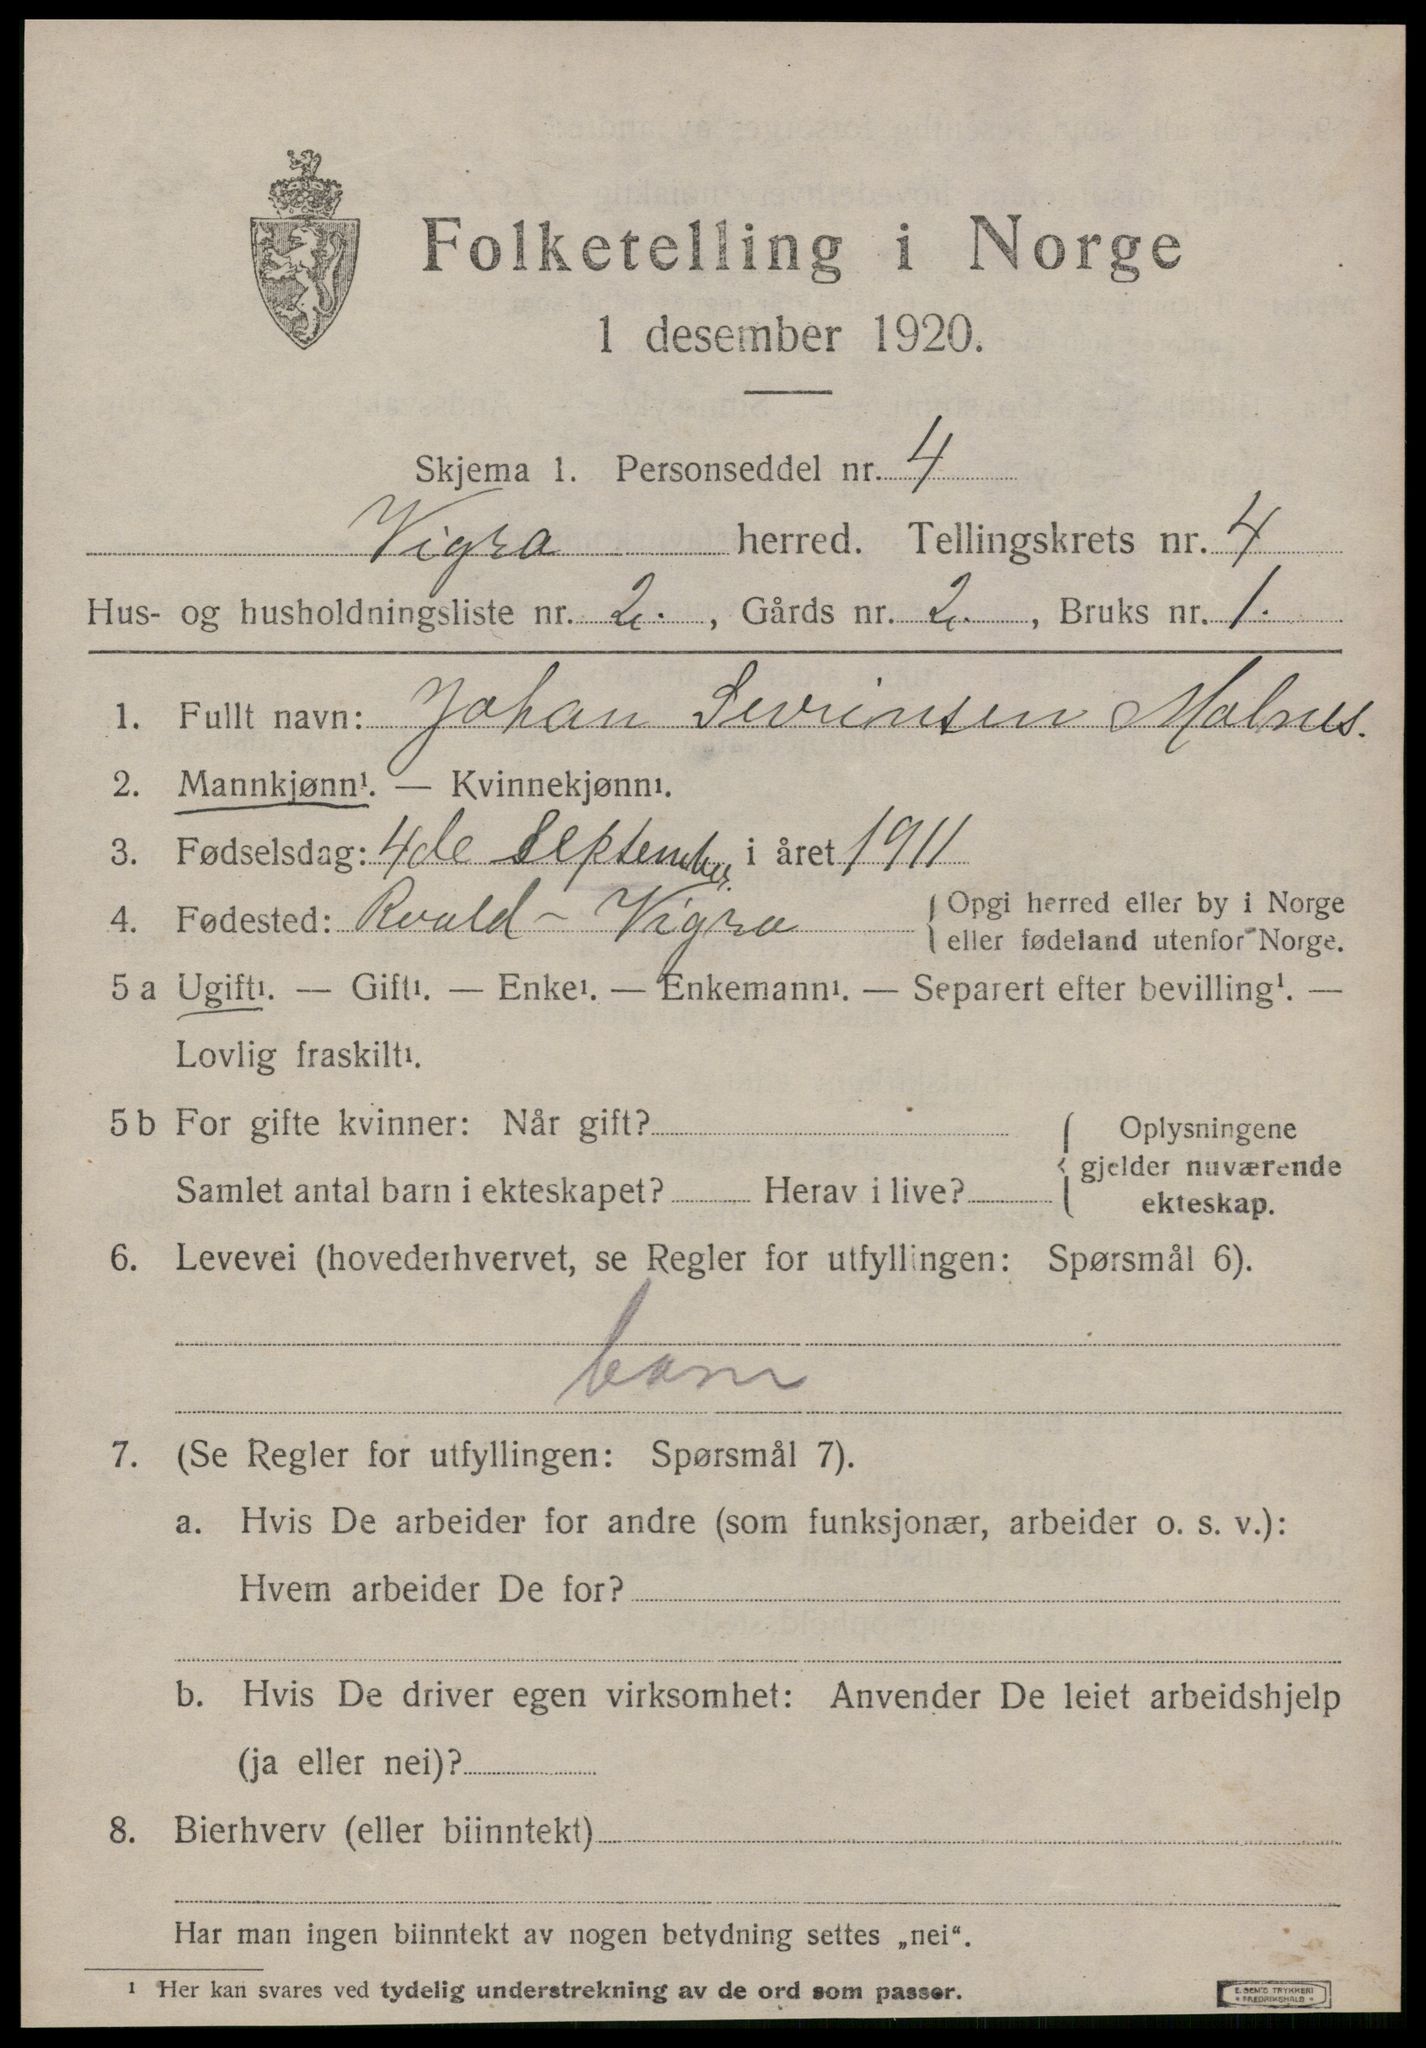 Folketelling i Norge
1 desember 1920.
Skjema 1. Personseddel nr. 4
Vigra herred. Tellingskrets nr. 4
Hus- og husholdningsliste nr. 2. , Gårds nr. 2. , Bruks nr. 1.
1. Fullt navn: Johan Sevrinsen Molnes.
2. Mannkjønn¹. — Kvinnekjønn¹.
3. Fødselsdag: 4de September i året 1911
4. Fødested: Roald - Vigra { Opgi herred eller by i Norge
eller fødeland utenfor Norge.
5 a Ugift¹. — Gift¹. — Enke¹. — Enkemann¹. — Separert efter bevilling¹. —
Lovlig fraskilt¹.
5 b For gifte kvinner: Når gift? { Oplysningene
gjelder nuværende
Samlet antal barn i ekteskapet? Herav i live?
ekteskap.
6. Levevei (hovederhvervet, se Regler for utfyllingen: Spørsmål 6).
barn
7. (Se Regler for utfyllingen: Spørsmål 7).
a. Hvis De arbeider for andre (som funksjonær, arbeider o. s. v.):
Hvem arbeider De for?
b. Hvis De driver egen virksomhet: Anvender De leiet arbeidshjelp
(ja eller nei)?
8. Bierhverv (eller biinntekt)
Har man ingen biinntekt av nogen betydning settes „nei“.
¹ Her kan svares ved tydelig understrekning av de ord som passer.
E. SEM'S TRYKKERI
• FREDRIKSHALD •